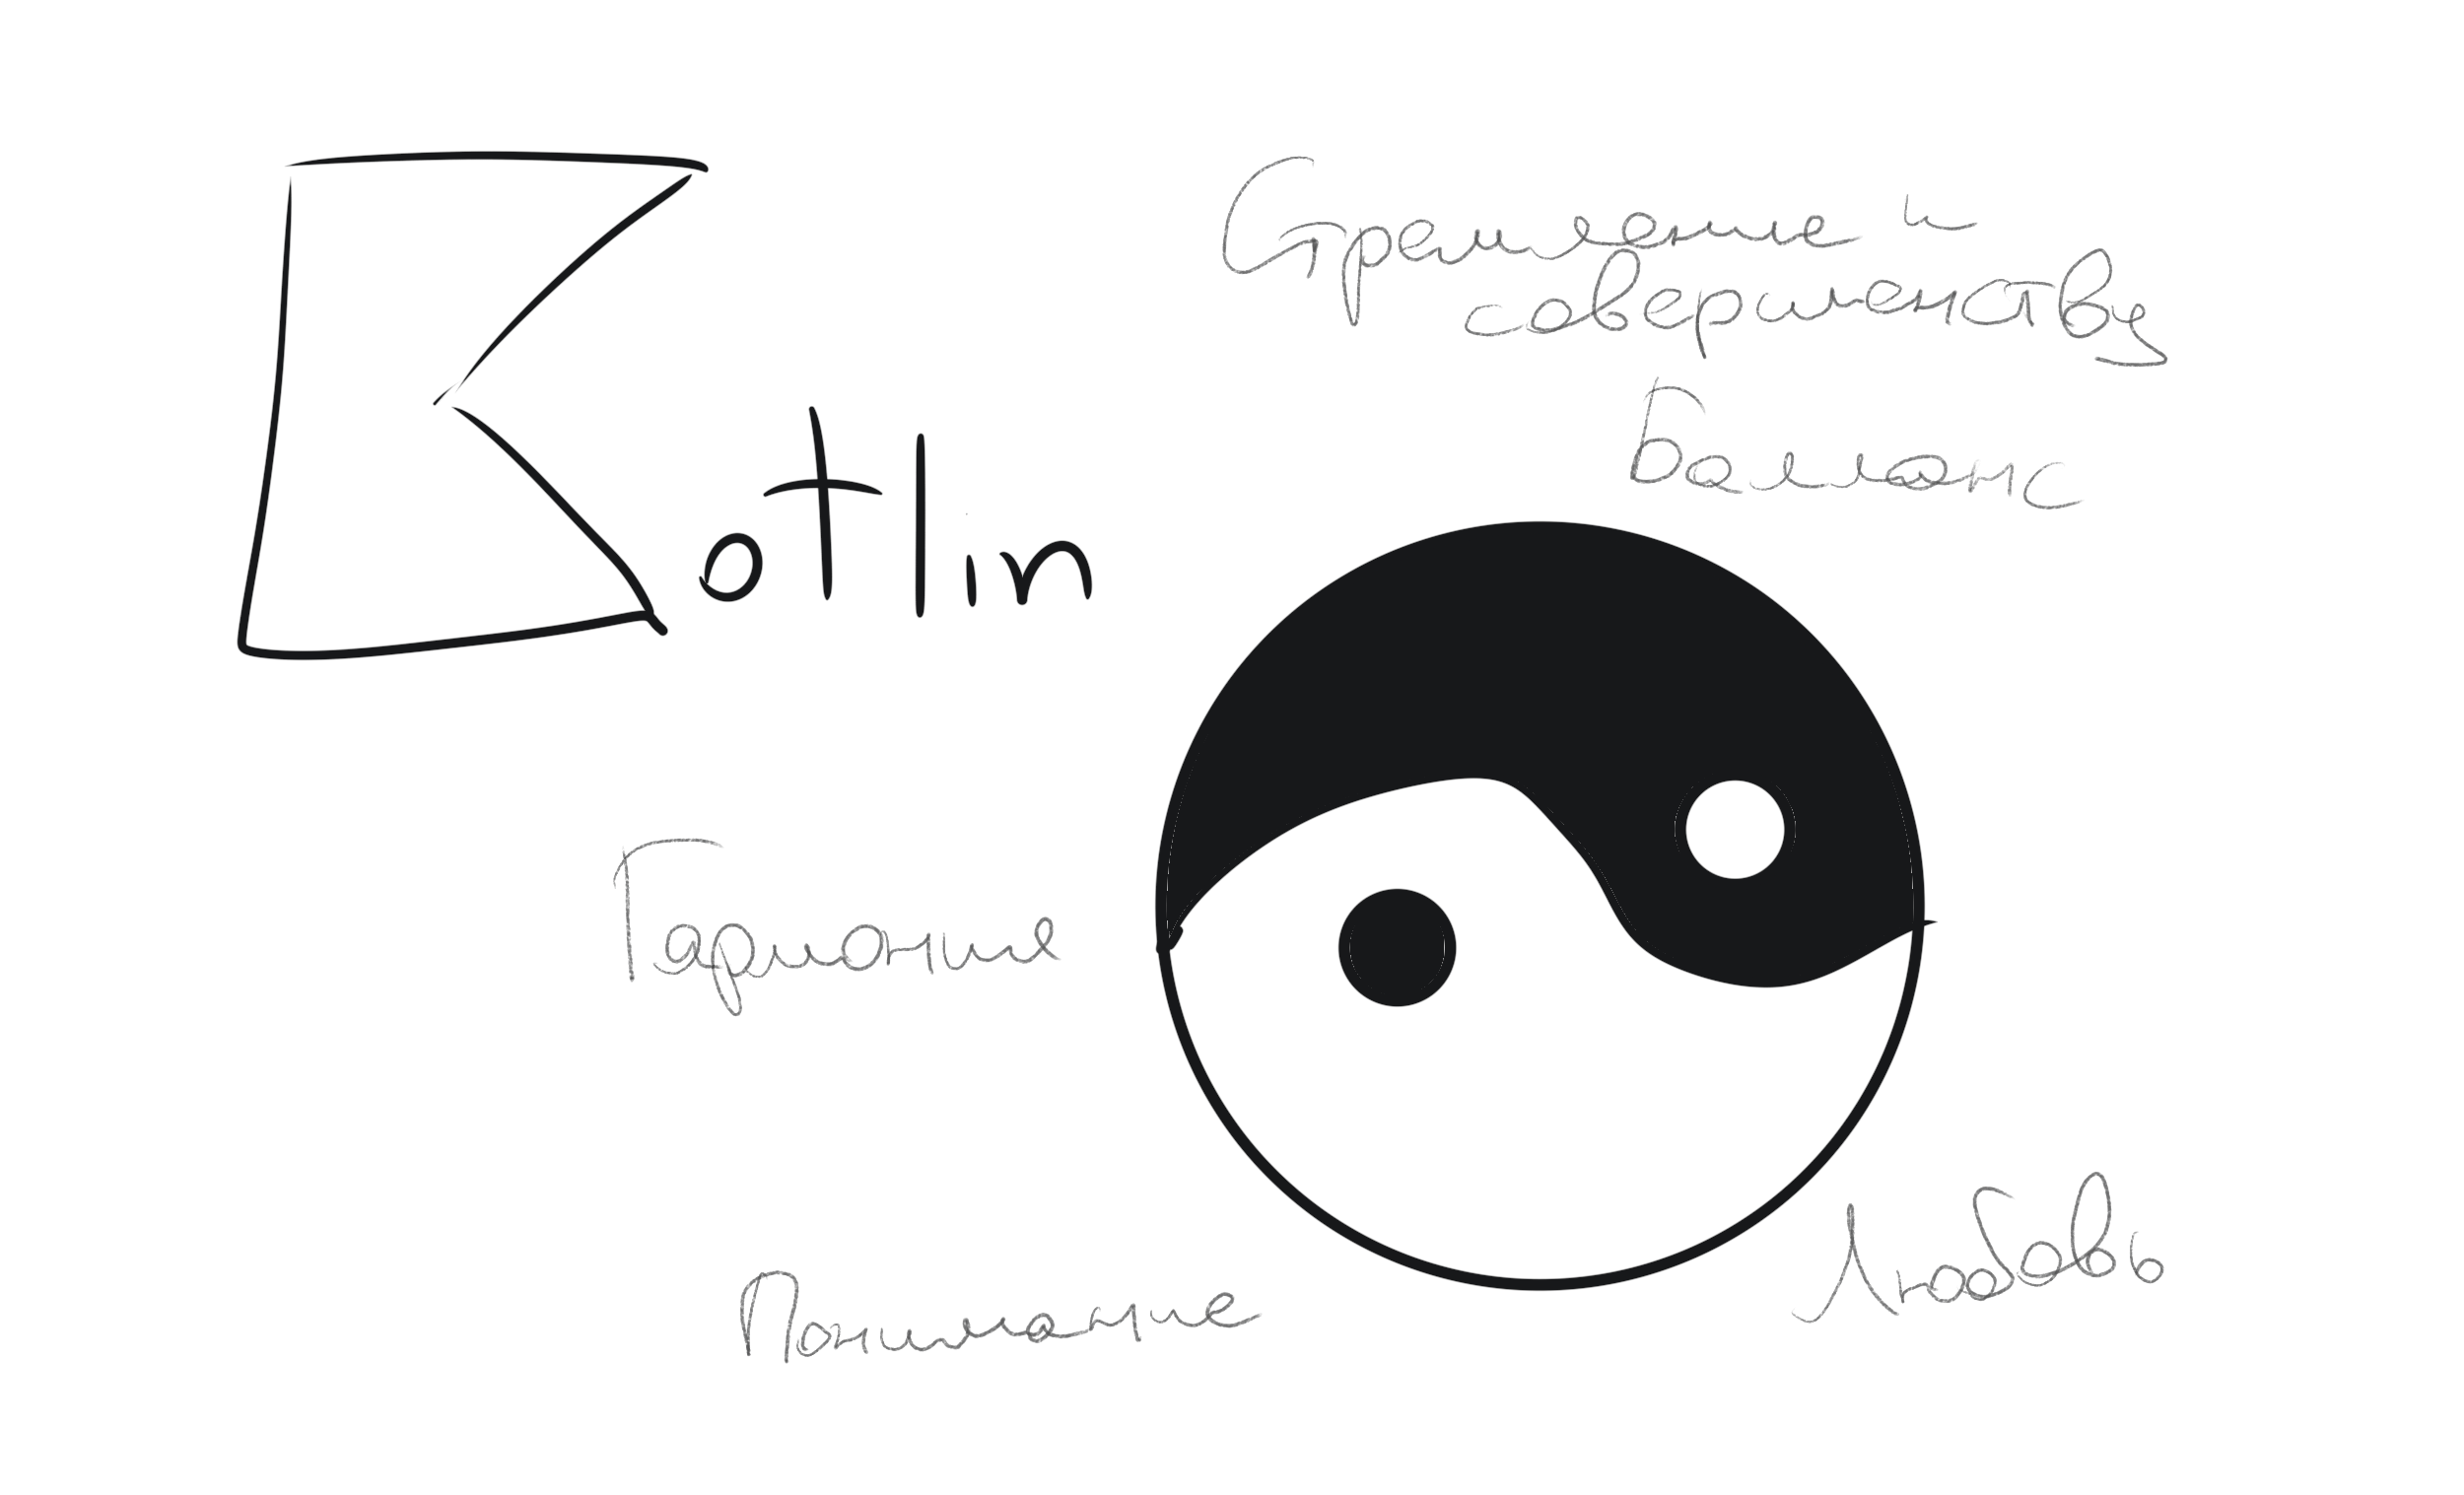 Kotlin
Стремление к
совершенству
Балланс
Гармоние
Понимание
Любовь